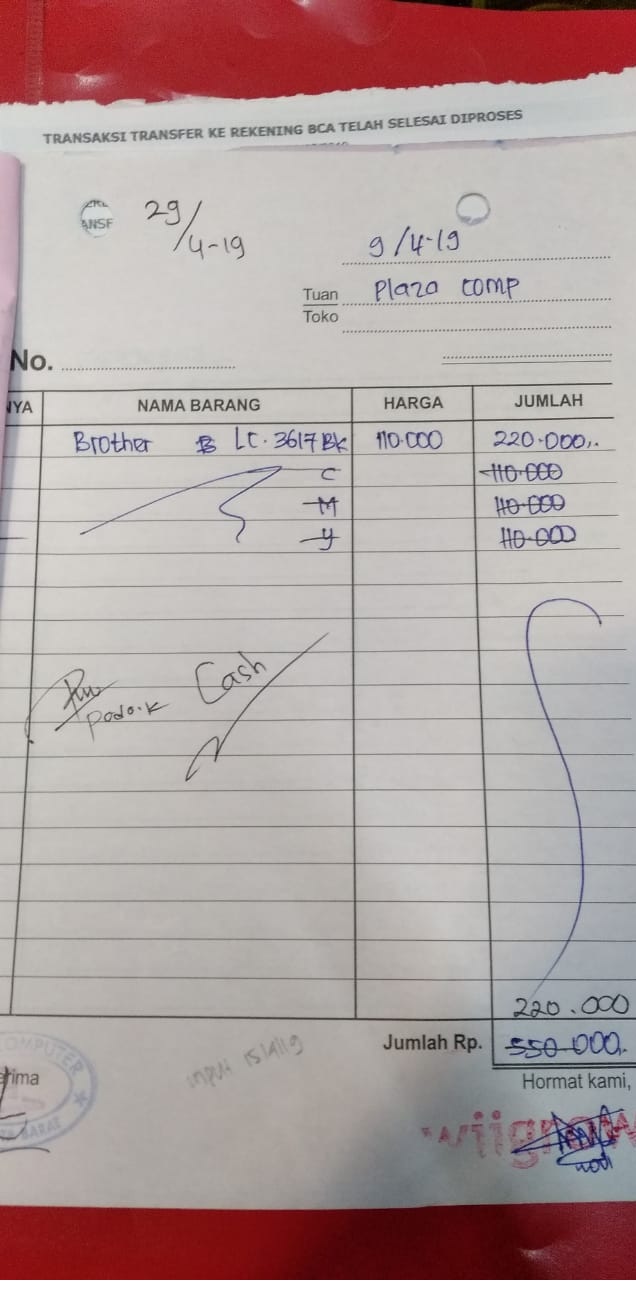 TRANSAKSI TRANSFER KE REKENING BCA TELAH SELESAI DIPROSES
ANSF
29/4-19
9/4-19
Tuan Plaza comp
Toko
No.
NYA NAMA BARANG HARGA JUMLAH
Brother B LC.3617 BK 110.000 220.000,.
C 110.000
M 110.000
Y 110.000
Cash
220.000
Jumlah Rp. 550.000,.
input 15/4/19
OMPUTER
erima
Hormat kami,
BARAT